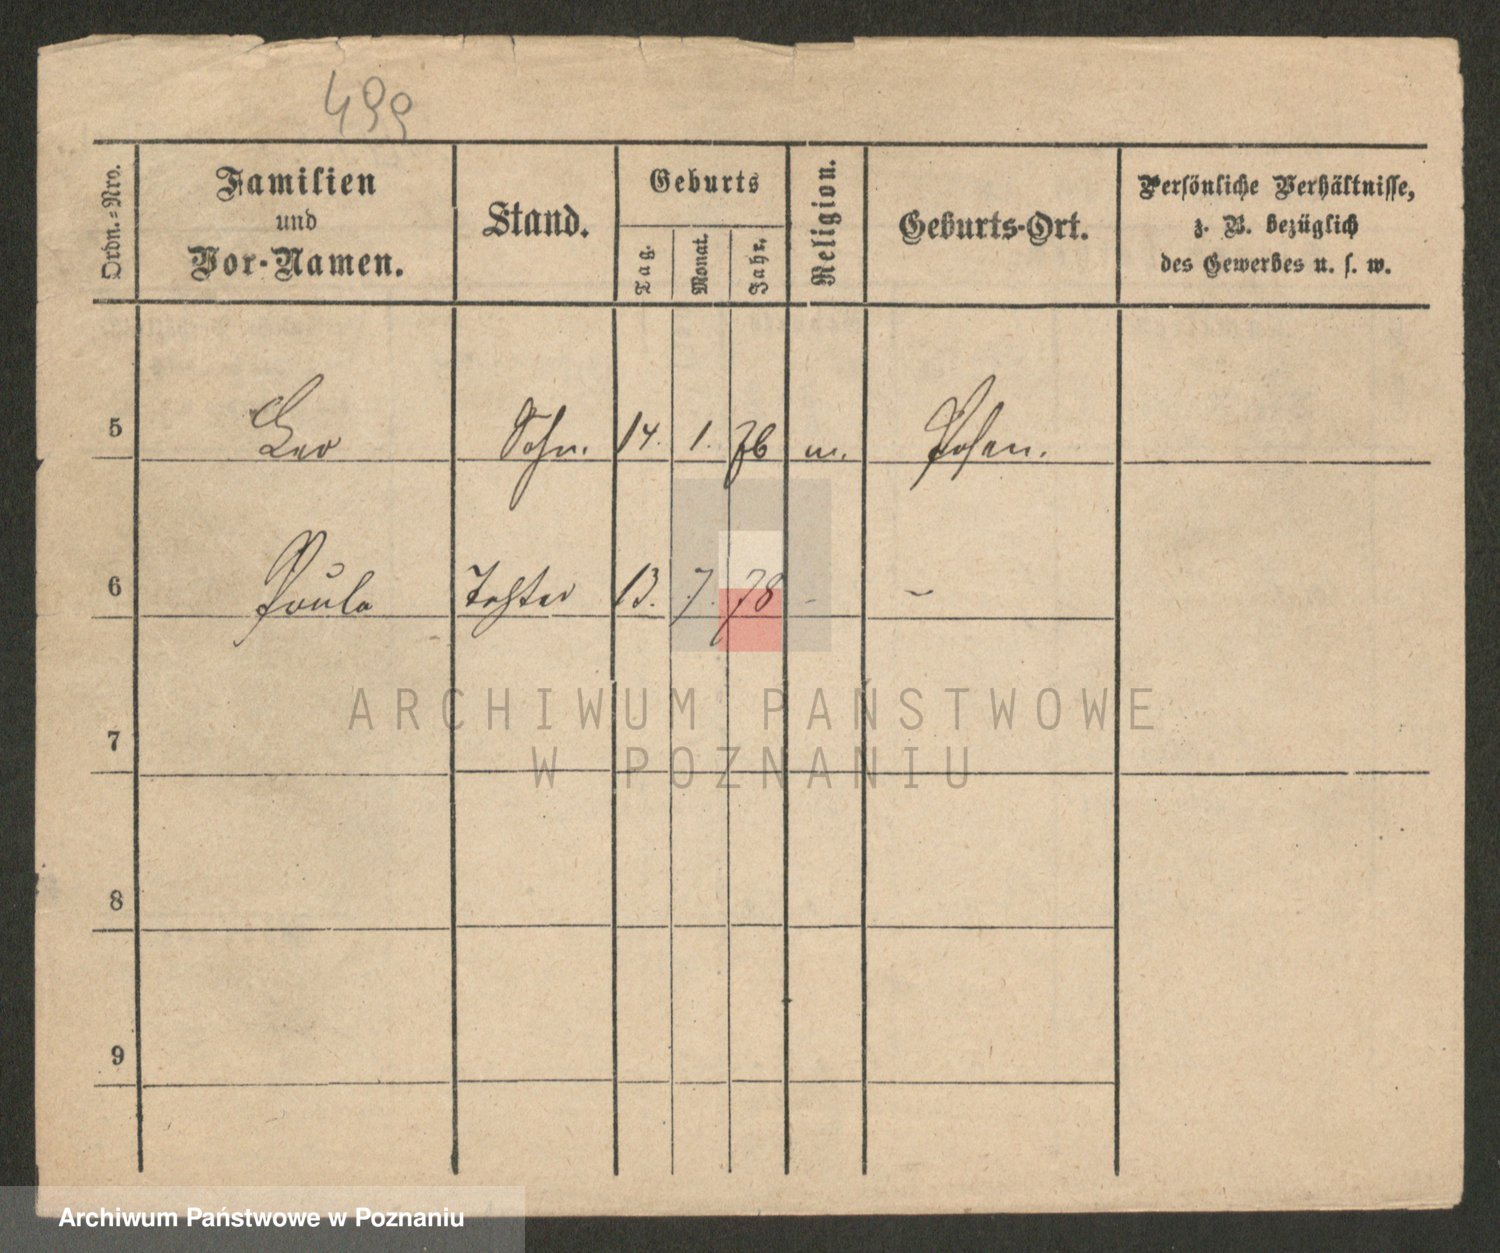 499
Ordn.=Nro.
Familien
und
Vor-Namen.
Stand.
Geburts
Tag.
Monat.
Jahr.
Religion.
Geburts-Ort.
Persönliche Verhältnisse,
z. B. bezüglich
des Gewerbes u. s. w.
5 Leo Sohn. 14. 1. 76 m. Posen.
6 Paula Tochter 13. 7. 78 - -
7
8
9
ARCHIWUM PAŃSTWOWE
W POZNANIU
Archiwum Państwowe w Poznaniu